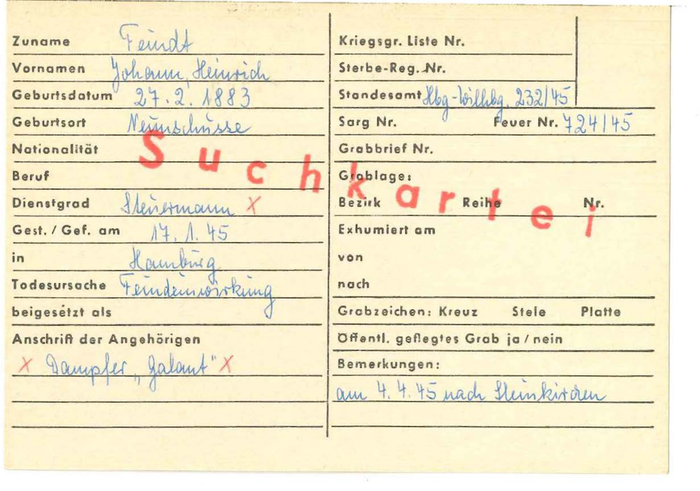 Zuname Feindt
Vornamen Johann, Heinrich
Geburtsdatum 27.2.1883
Geburtsort Neuenschleuse
Nationalität
Beruf
Dienstgrad Steuermann x
Gest. / Gef. am 17.1.45
in Hamburg
Todesursache Feindeinwirkung
beigesetzt als
Anschrift der Angehörigen
x Dampfer „Galant" x
Suchkartei
Kriegsgr. Liste Nr.
Sterbe-Reg. Nr.
Standesamt Hbg-Wilhbg. 232/45
Sarg Nr. Feuer Nr. 724/45
Grabbrief Nr.
Grablage:
Bezirk Reihe Nr.
Exhumiert am
von
nach
Grabzeichen: Kreuz Stele Platte
Öffentl. gepflegtes Grab ja / nein
Bemerkungen:
am 4.4.45 nach Steinkirchen